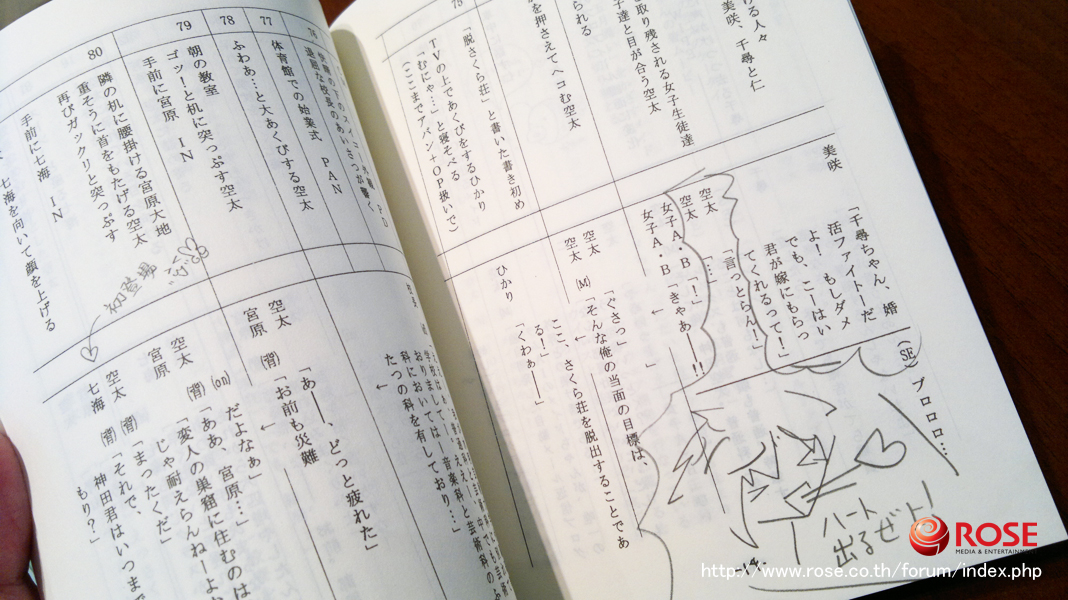 ける人々
美咲、千尋と仁
取り残される女子生徒達
子達と目が合う空太
られる
を押さえてヘコむ空太
75
「脱さくら荘」と書いた書き初め
TVの上であくびをするひかり
「むにゃ…」と寝そべる
(ここまでアバン+OP扱いで)
(SE) ブロロロ…
美咲 「千尋ちゃん、婚
活ファイトーだ
よー! もしダメ
でも、こーはい
君が嫁にもらっ
てくれるって!」
空太 「言っとらん!」
空太 「…
女子A・B 「!」
女子A・B 「きゃあ――!!
← 」
空太 「ぐさっ」
空太 (M) 「そんな俺の当面の目標は、
←
ここ、さくら荘を脱出することであ
る!」
ひかり 「くわぁ――」
ハート
出るぜよ!
-14-
76
退屈な校長のあいさつが響く
77
体育館での始業式 PAN
78
ふわぁ…と大あくびする空太
79
朝の教室
ゴツーと机に突っぷす空太
手前に宮原 IN
80
隣の机に腰掛ける宮原大地
重そうに首をもたげる空太
再びガックリと突っぷす
手前に七海 IN
七海を向いて顔を上げる
学校ましては、普
科においては、音楽科と芸術科の
たつの科を有しており…」
←
空太 「あ――、どっと疲れた」
宮原 (背) 「お前も災難
←
だよなぁ」
空太 (on) 「ああ、宮原…」
宮原 (背) 「変人の巣窟に住むのは
じゃ耐えらんねーよ
空太 (背) 「まったくだ」
七海 (背) 「それで、
神田君はいつまで
もり?」
ROSE
MEDIA & ENTERTAINMENT
http://www.rose.co.th/forum/index.php